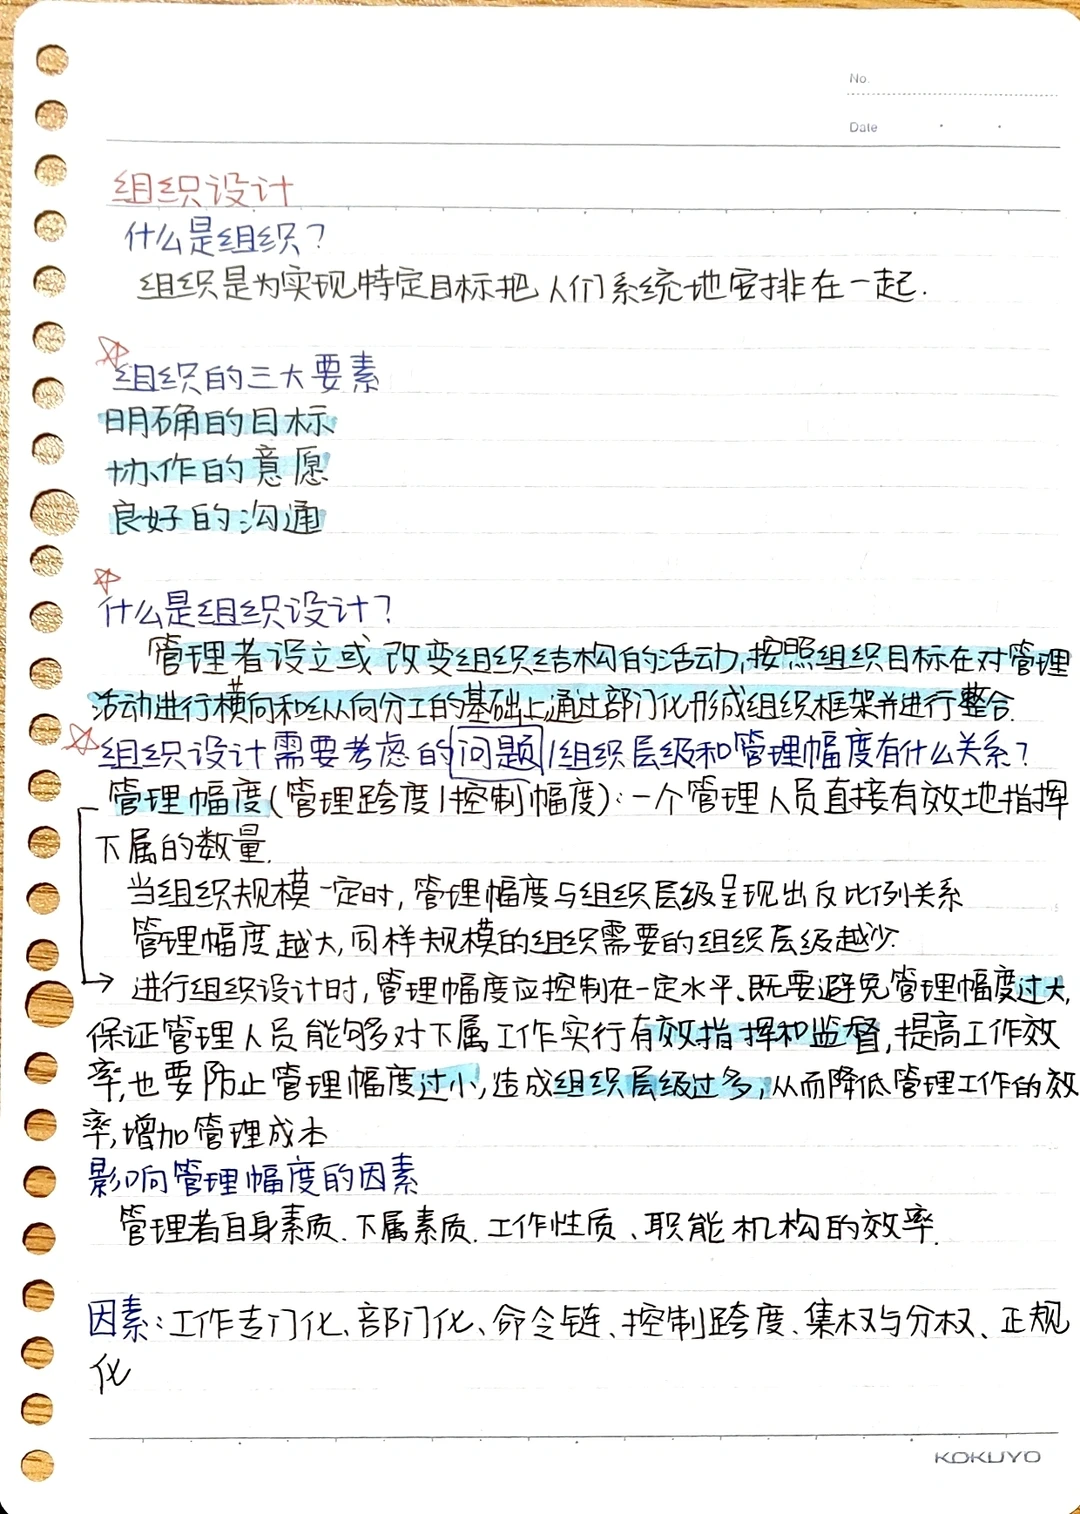 No.
Date
组织设计
什么是组织?
组织是为实现特定目标把人们系统地安排在一起.
组织的三大要素
明确的目标
协作的意愿
良好的沟通
什么是组织设计?
管理者设立或改变组织结构的活动,按照组织目标在对管理
活动进行横向和纵向分工的基础上,通过部门化形成组织框架并进行整合.
组织设计需要考虑的问题/组织层级和管理幅度有什么关系?
管理幅度(管理跨度/控制幅度):一个管理人员直接有效地指挥
下属的数量.
当组织规模一定时,管理幅度与组织层级呈现出反比例关系
管理幅度越大,同样规模的组织需要的组织层级越少.
进行组织设计时,管理幅度应控制在一定水平、既要避免管理幅度过大,
保证管理人员能够对下属工作实行有效指挥和监督,提高工作效
率,也要防止管理幅度过小,造成组织层级过多,从而降低管理工作的效
率,增加管理成本
影响管理幅度的因素
管理者自身素质、下属素质、工作性质、职能机构的效率.
因素:工作专门化、部门化、命令链、控制跨度、集权与分权、正规
化
KOKUYO